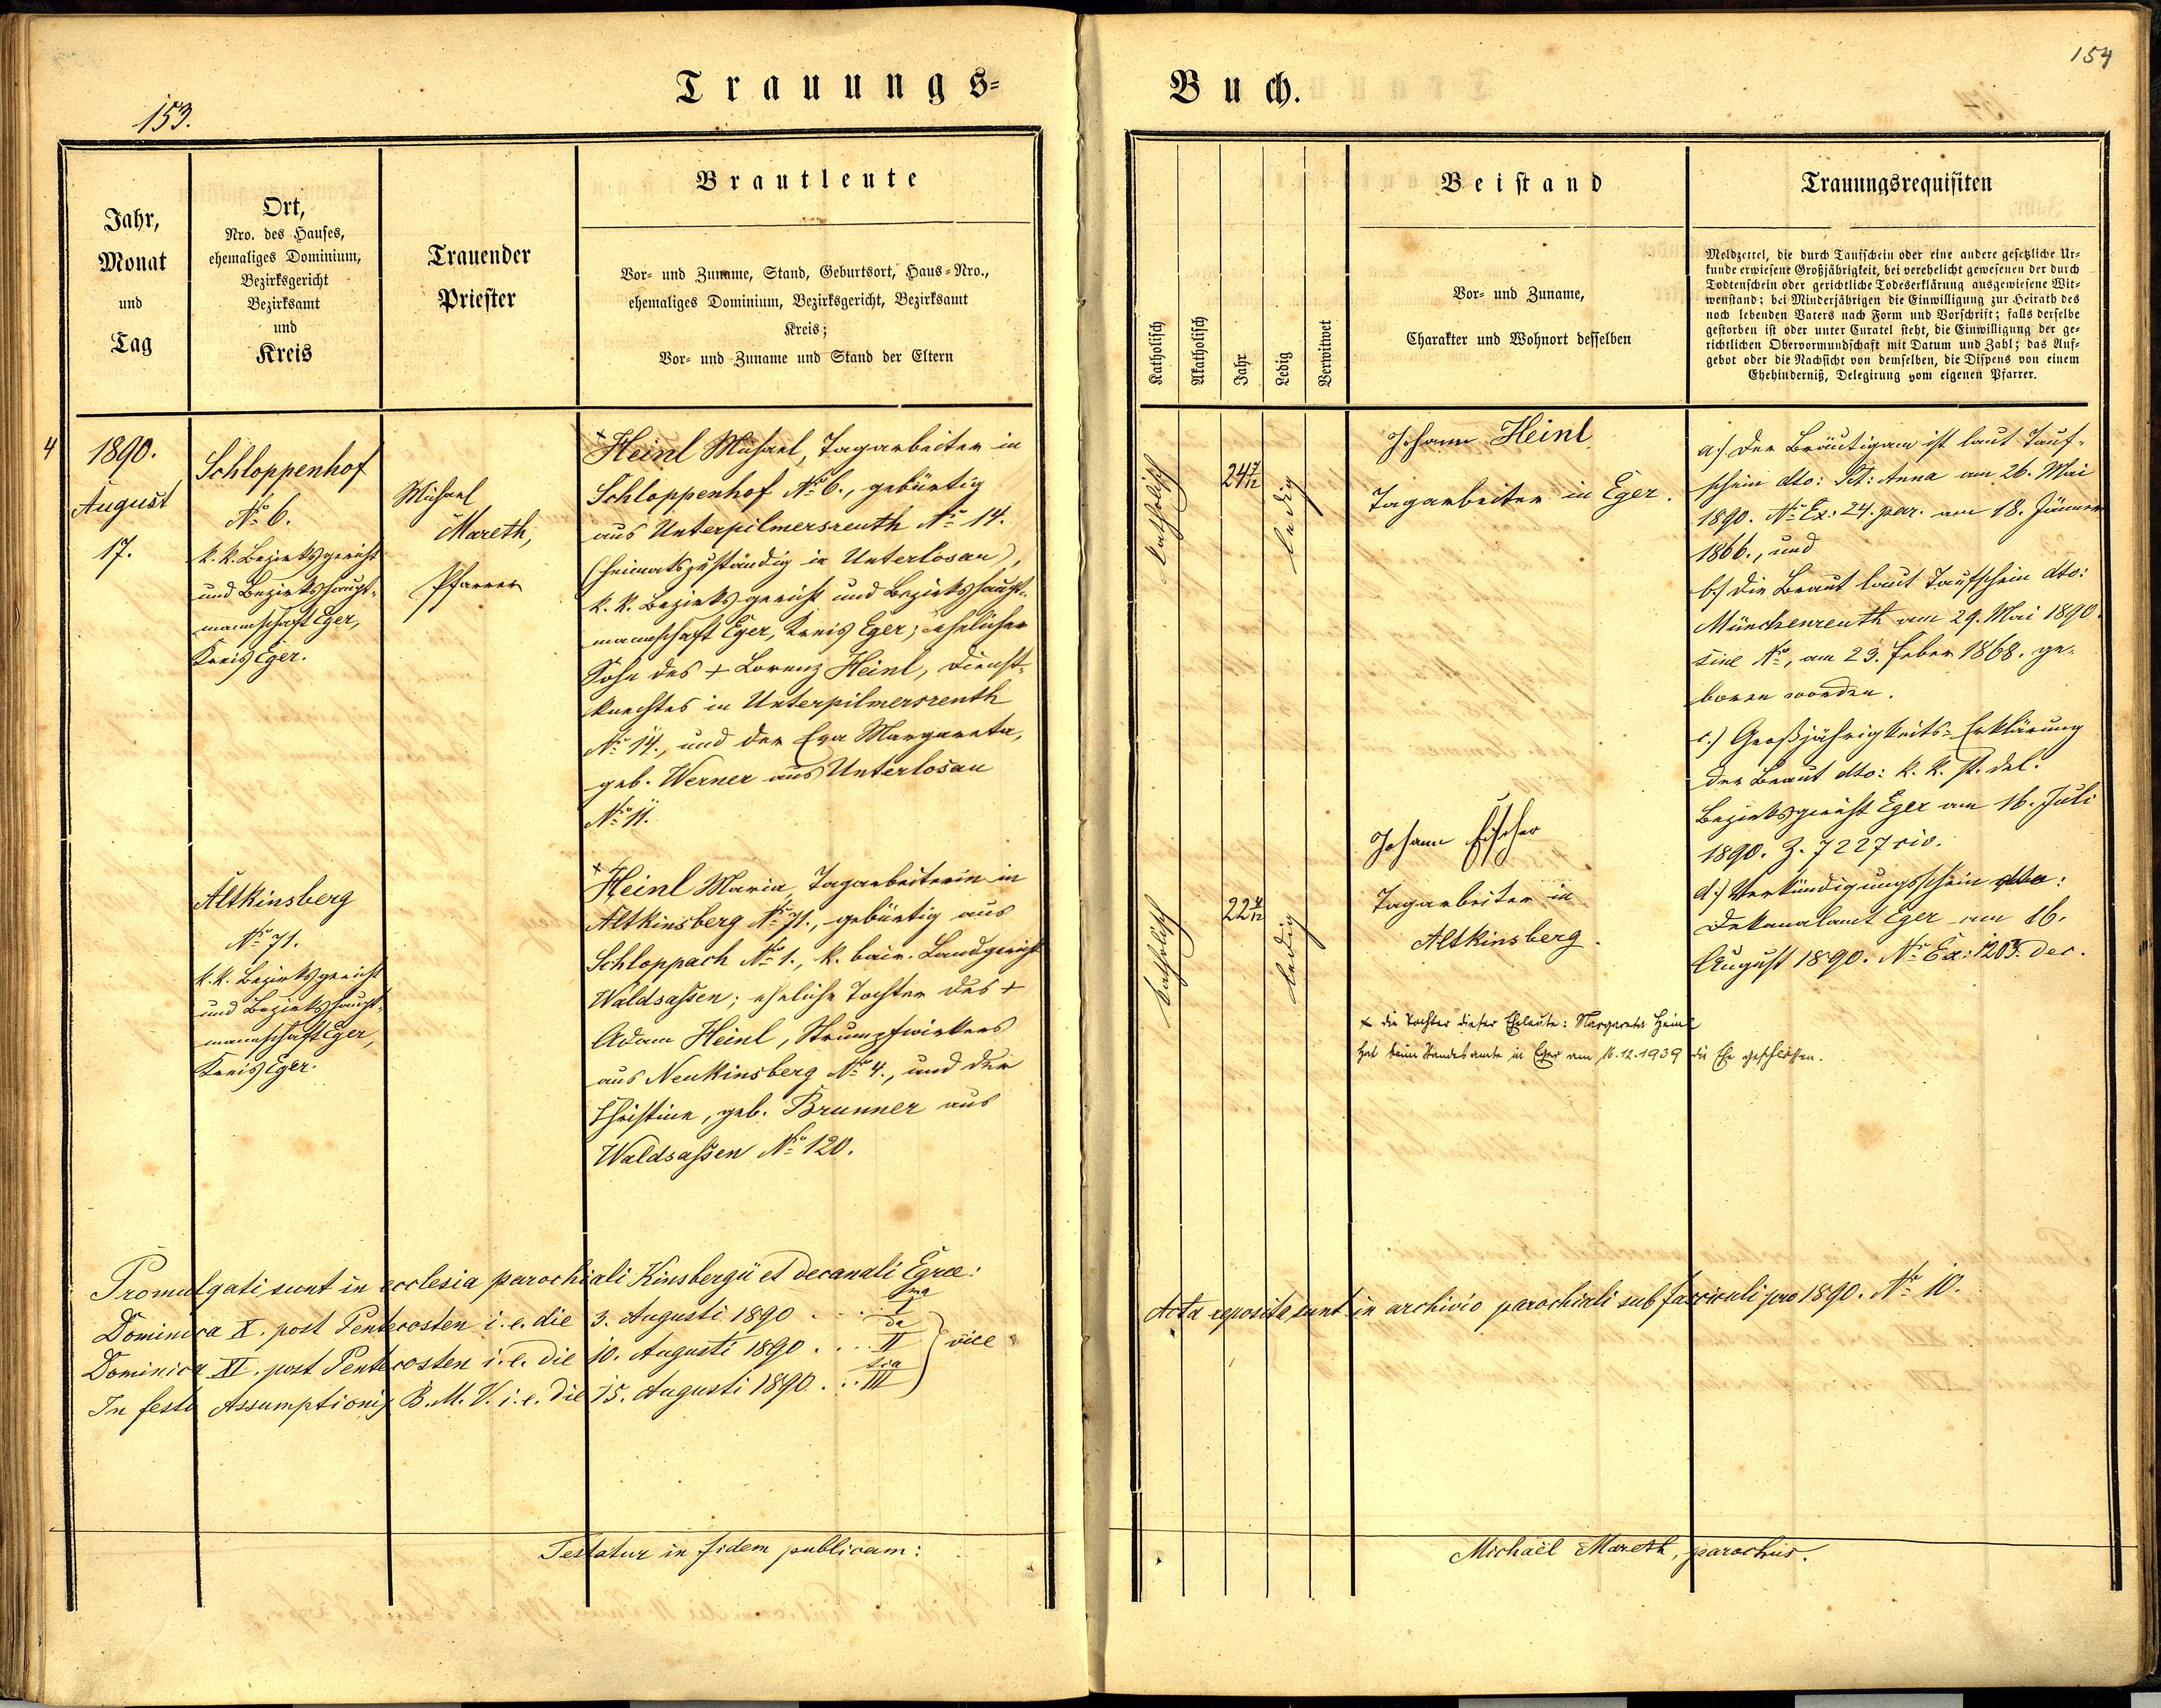 153.
Trauungs=
Jahr,
Monat
und
Tag
Ort,
Nro. des Hauses,
ehemaliges Dominium,
Bezirksgericht
Bezirksamt
und
Kreis
Trauender
Priester
Brautleute
Vor- und Zuname, Stand, Geburtsort, Haus-Nro.,
ehemaliges Dominium, Bezirksgericht, Bezirksamt
Kreis;
Vor- und Zuname und Stand der Eltern
4
1890.
August
17.
Schloppenhof
No 6.
k. k. Bezirksgericht
und Bezirkshaupt-
mannschaft Eger,
Kreis Eger.
Michael
Mareth,
Pfarrer
+Heinl Michael, Tagarbeiter in
Schloppenhof No 6., gebürtig
aus Unterpilmersreuth No 14.
(heimatszuständig in Unterlosau),
k. k. Bezirksgericht und Bezirkshaupt-
mannschaft Eger, Kreis Eger; ehelicher
Sohn des + Lorenz Heinl, Dienst-
knechtes in Unterpilmersreuth
No 14., und der Eva Margareta,
geb. Werner aus Unterlosau
No 11.
Altkinsberg
No 71.
k. k. Bezirksgericht
und Bezirkshaupt-
mannschaft Eger,
Kreis Eger.
+Heinl Maria, Tagarbeiterin in
Altkinsberg No 71., gebürtig aus
Schloppach No 1., k. bair. Landgericht
Waldsassen; eheliche Tochter des +
Adam Heinl, Strumpfwirkers
aus Neukinsberg No 4., und der
Christine, geb. Brunner aus
Waldsassen No 120.
Promulgati sunt in ecclesia parochiali Kinsbergii et decanali Egrae:
Dominica X. post Pentecosten i. e. die 3. Augusti 1890 . . . I ma
Dominica XI. post Pentecosten i. e. die 10. Augusti 1890 . . . II da
In festo Assumptionis B. M. V. i. e. die 15. Augusti 1890 . . . III tia
} vice
Testatur in fidem publicam:
154
Buch.
Katholisch
Akatholisch
Jahr
Ledig
Verwitwet
Beistand
Vor- und Zuname,
Charakter und Wohnort desselben
Trauungsrequisiten
Meldzettel, die durch Taufschein oder eine andere gesetzliche Ur-
kunde erwiesene Großjährigkeit, bei verehelicht gewesenen der durch
Todtenschein oder gerichtliche Todeserklärung ausgewiesene Wit-
wenstand; bei Minderjährigen die Einwilligung zur Heirath des
noch lebenden Vaters nach Form und Vorschrift; falls derselbe
gestorben ist oder unter Curatel steht, die Einwilligung der ge-
richtlichen Obervormundschaft mit Datum und Zahl; das Auf-
gebot oder die Nachsicht von demselben, die Dispens von einem
Ehehinderniß, Delegirung vom eigenen Pfarrer.
katholisch
24 7/12
ledig
Johann Heinl
Tagarbeiter in Eger.
katholisch
22 4/12
ledig
Johann Fischer
Tagarbeiter in
Altkinsberg.
+ die Tochter dieser Eheleute: Margareta Heinl
hat beim Standesamte in Eger am 16.12.1939 die Ehe geschlossen.
a.) Der Bräutigam ist laut Tauf-
schein dto: St: Anna am 26. Mai
1890. No Ex: 24. par. am 18. Jänner
1866., und
b.) die Braut laut Taufschein dto:
Münchenreuth am 29. Mai 1890.
sine No, am 23. Feber 1868. ge-
boren worden.
c.) Großjährigkeits-Erklärung
der Braut dto: k. k. st. del.
Bezirksgericht Eger am 16. Juli
1890. Z. 7227 civ.
d.) Verkündigungsschein dto:
Dekanalamt Eger am 16.
August 1890. No Ex: 1203. dec.
Acta reposita sunt in archivio parochiali sub fasciculi pro 1890. No 10.
Michaël Mareth, parochus.